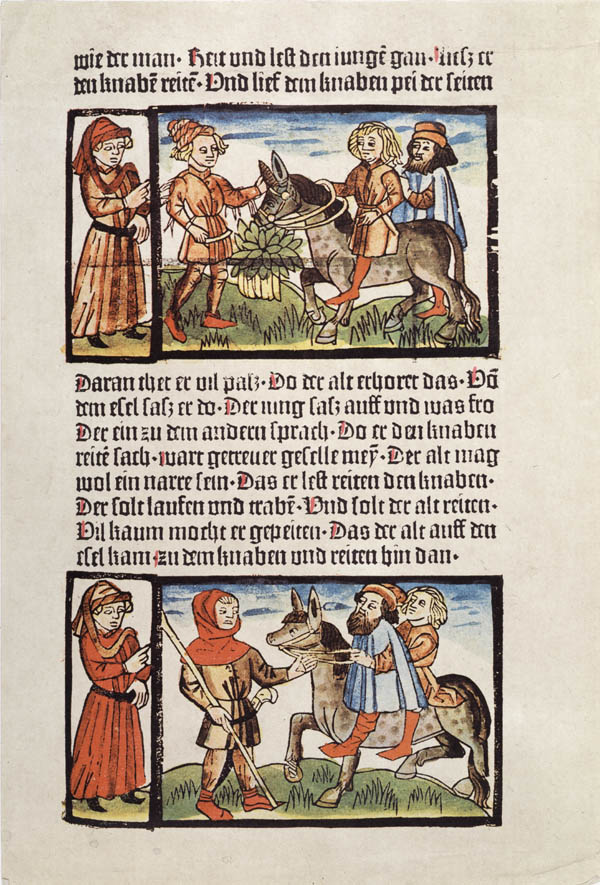 wie der man · Reit vnd lest den iungē gan · Liesz er
den knabē reitē · Vnd lief dem knaben pei der seiten
Daran thet er vil pasz · Do der alt erhoret das · Vō
dem esel sasz er do · Der iung sasz auff vnd was fro
Der ein zu dem andern sprach · Do er den knaben
reitē sach · wart getreuer geselle meȳ · Der alt mag
wol ein narre sein · Das er lest reiten den knaben ·
Der solt laufen vnd trabē · Vnd solt der alt reiten ·
Vil kaum mocht er gepeiten · Das der alt auff den
esel kam · zu dem knaben vnd reiten hin dan ·